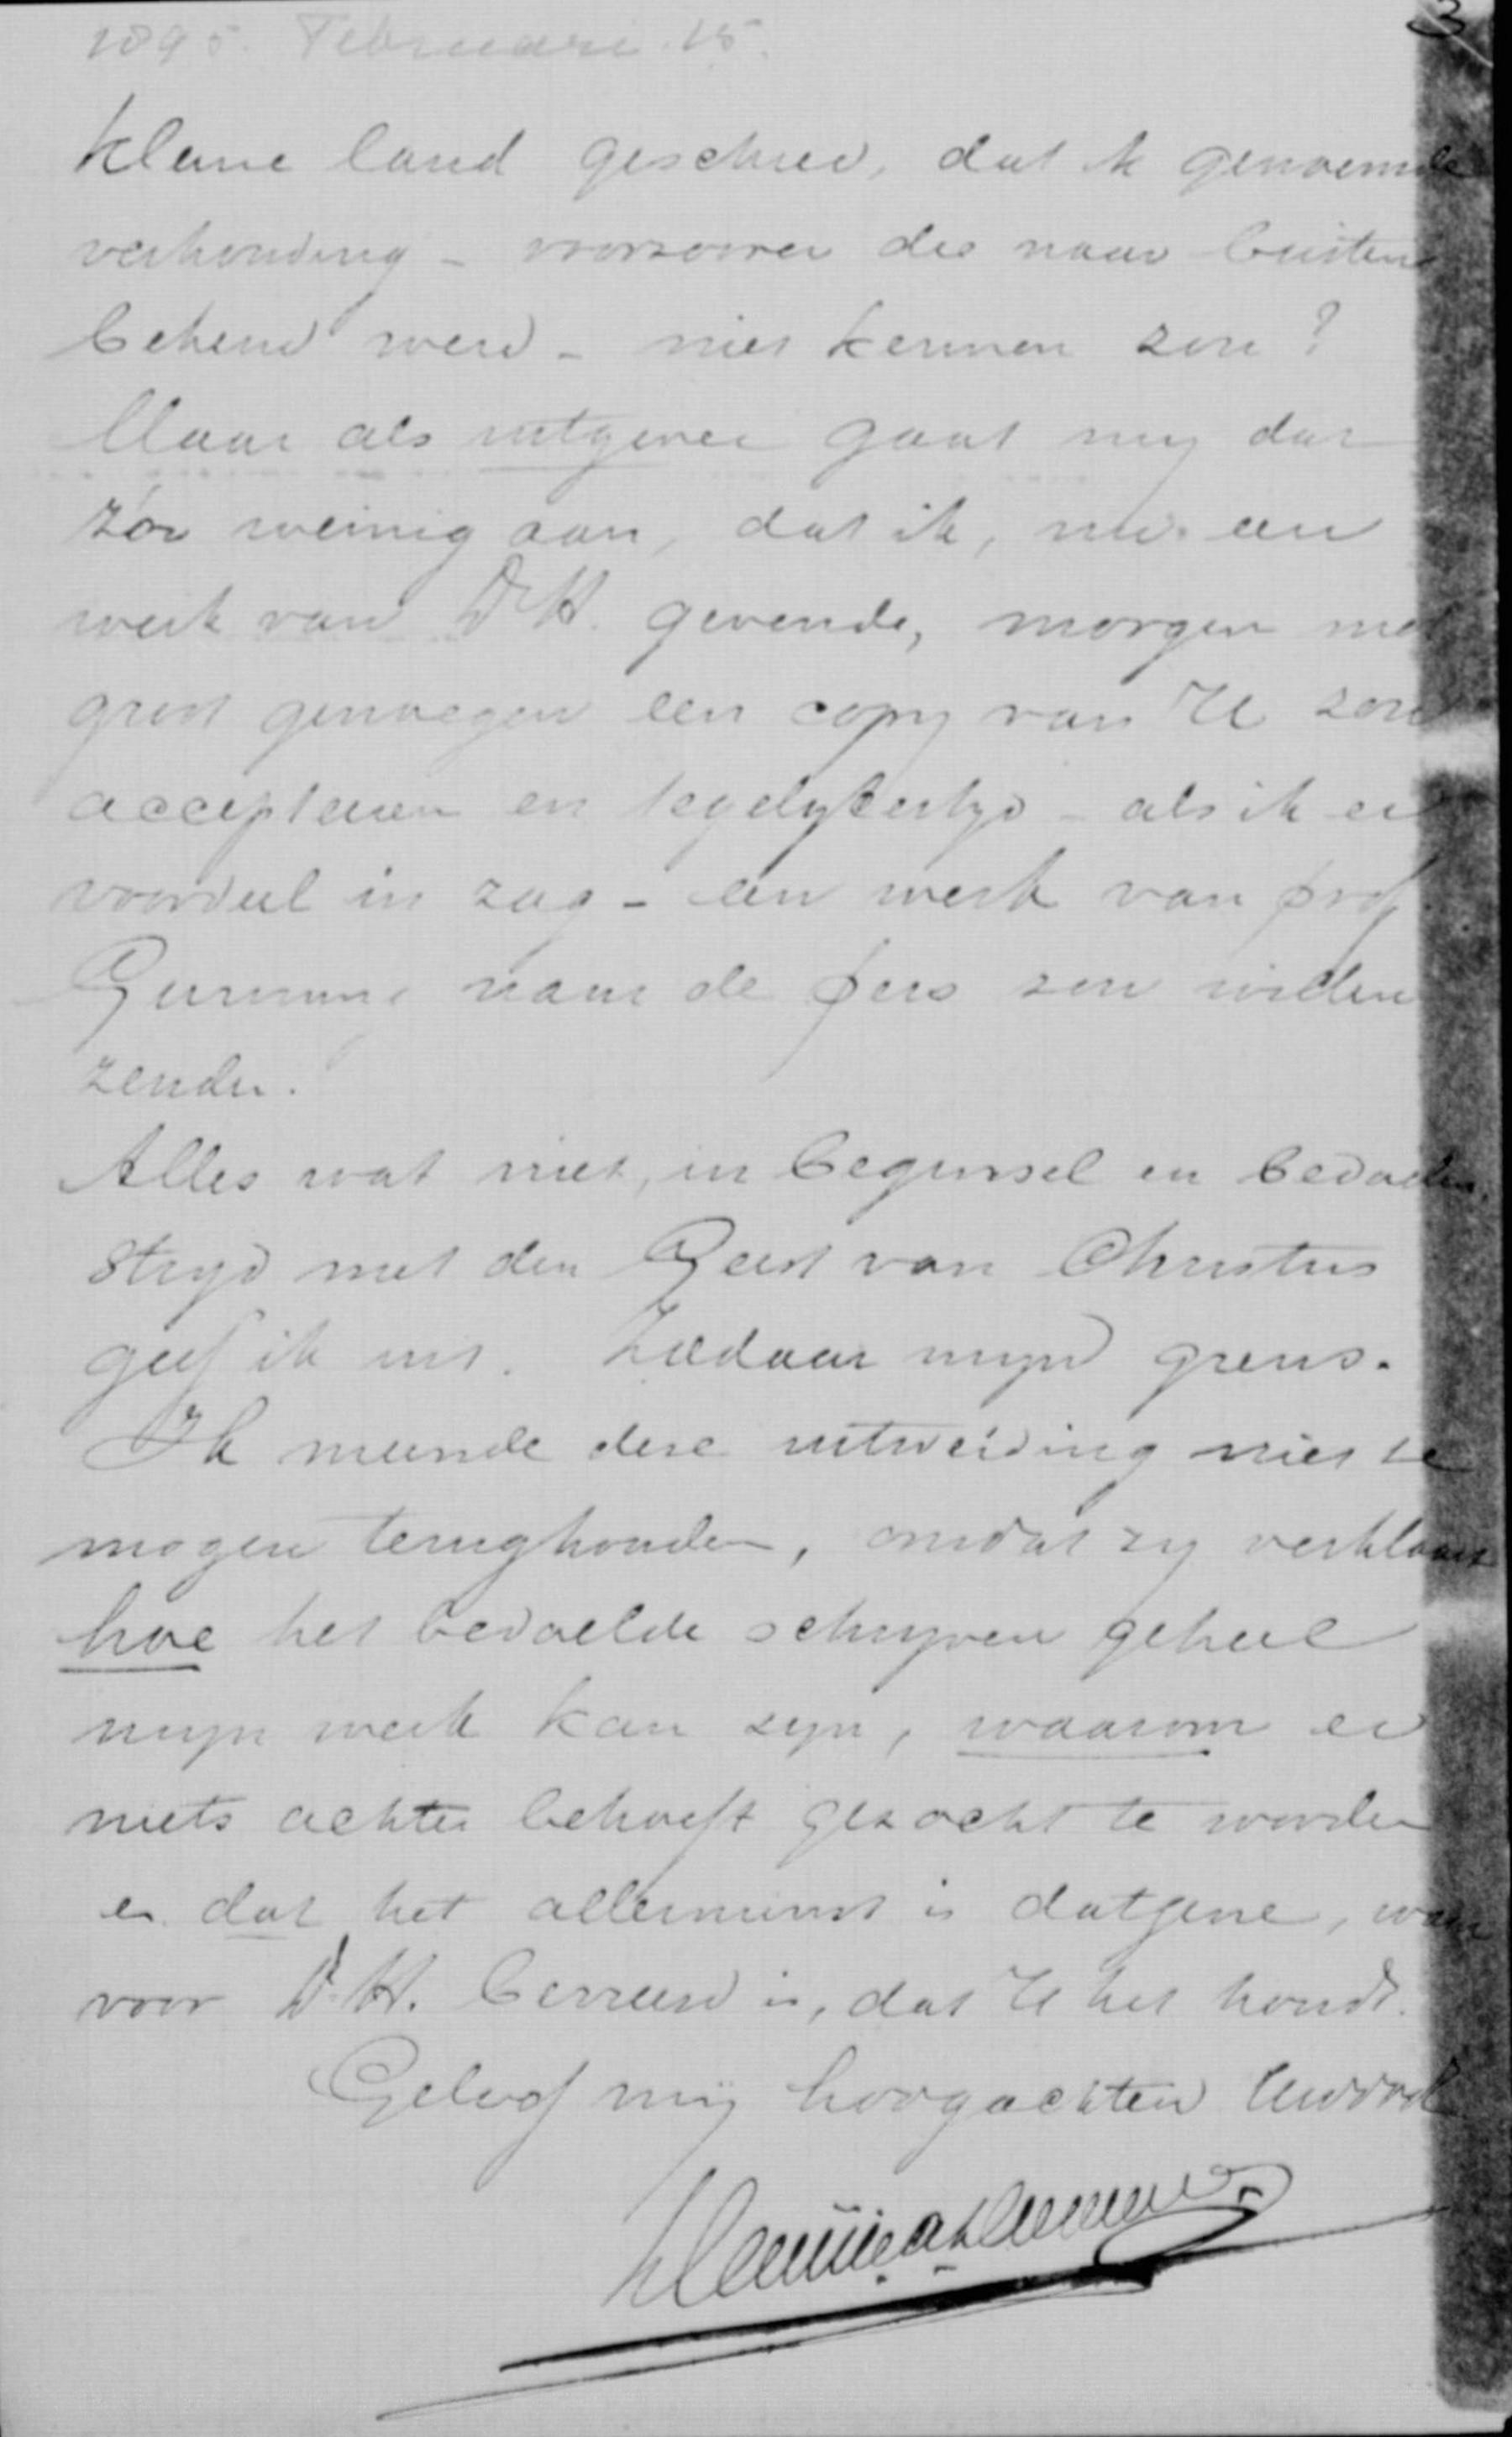 1895. Februari. 15.
3
kleine land geschied, dat ik genoemde
verhouding – voorzoover die naar buiten
bekend werd – niet kennen zou?
Maar als uitgever gaat mij dat
zóó weinig aan, dat ik, nu een
werk van Dr. H. gevende, morgen met
groot genoegen een copy van U zou
accepteeren en tegelijkertijd – als ik er
voordeel in zag – een werk van prof.
Gunning naar de pers zou willen
zenden.
Alles wat niet, in beginsel en bedoelen,
strijd met den Geest van Christus
geef ik uit. Ziedaar mijn grens.
Ik meende deze uitweiding niet te
mogen terughouden, omdat zij verklaart
hoe het bedoelde schrijven geheel
mijn werk kan zijn, waarom er
niets achter behoeft gezocht te worden
en dat het allerminst is datgene, waar
voor Dr. H. bevreesd is, dat U het houdt.
Geloof mij hoogachtend